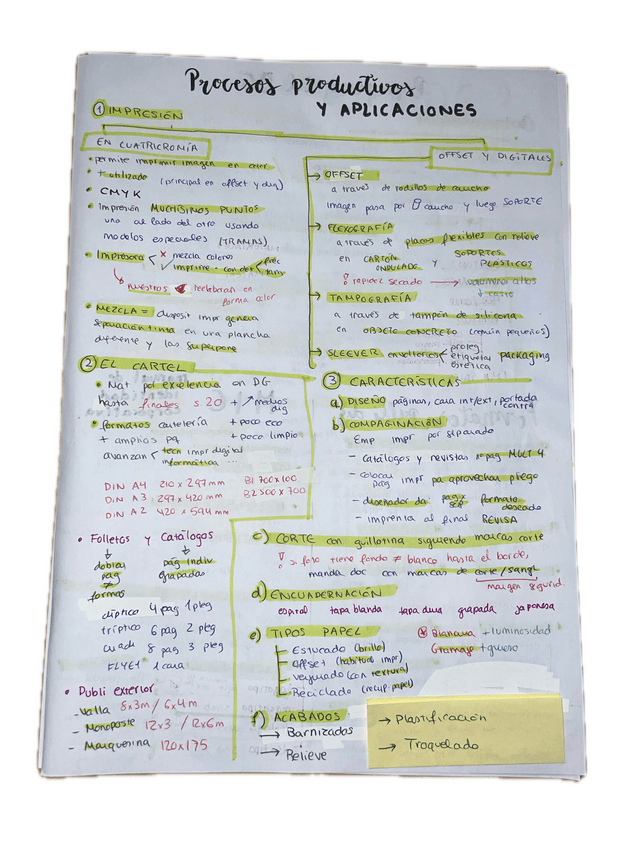 Procesos productivos
Y APLICACIONES
① IMPRESIÓN
EN CUATRICROMÍA
• permite imprimir imagen en color
• + utilizado (principal en offset y dig)
• CMYK
• Impresión MUCHÍSIMOS PUNTOS
uno al lado del otro usando
modelos especiales (TRAMAS)
• Impresora x mezcla colores
imprime
nuestros reelaboran en
forma color
• MEZCLA = disposit impr genera
separación tinta en una plancha
diferente y las superpone
OFFSET Y DIGITALES
→ OFFSET
a través de rodillos de caucho
imagen pasa por caucho y luego SOPORTE
→ FLEXOGRAFÍA
a través de placas flexibles con relieve
en CARTÓN ONDULADO y SOPORTES PLÁSTICOS
! rapidez secado → volúmenes altos
↓ coste
→ TAMPOGRAFÍA
a través de tampón de silicona
en OBJETO CONCRETO (común pequeños)
→ SLEEVER envolteriores proteg
etiquetas packaging
estética
② EL CARTEL
• Mat por excelencia en DG
hasta finales s.20 + ↗ medios dig
• formatos cartelería + poco eco
+ amplios pq + poco limpio
avanzan tecn impr digital
informática ...
DIN A4 210 x 297 mm B1 700x100
DIN A3: 297 x 420 mm B2 500 x 700
DIN A2 420 x 594 mm
• Folletos y Catálogos
↓ ↓
doblar pág indiv
pag grapadas
≠
formas
díptico 4 pag 1 pleg
tríptico 6 pag 2 pleg
cuadr 8 pag 3 pleg
FLYER 1 cara
• Publi exterior
- Valla 8x3m / 6x4 m
- Monoposte 12x3 / 12x6m
- Marquesina 120x175
③ CARACTERÍSTICAS
a) DISEÑO páginas, cara int/ext, portada
contra
b) COMPAGINACIÓN
Emp impr por separado
- Catálogos y revistas nº pag MULT 4
- colocar pág impr pa aprovechar pliego
- diseñador da: pag x sep formato deseado
- imprenta al final REVISA
c) CORTE con guillotina siguiendo marcas corte
! si foto tiene fondo ≠ blanco hasta el borde,
manda doc con marcas de corte / sangr
margen segurid.
d) ENCUADERNACIÓN
espiral tapa blanda tapa dura grapada japonesa
e) TIPOS PAPEL
Estucado (brillo)
Offset (habitual impr)
Verjurado (con textura)
Reciclado (recup. papel)
Blancura + luminosidad
Gramaje + grueso
f) ACABADOS:
→ Barnizados
→ Relieve
→ Plastificación
→ Troquelado